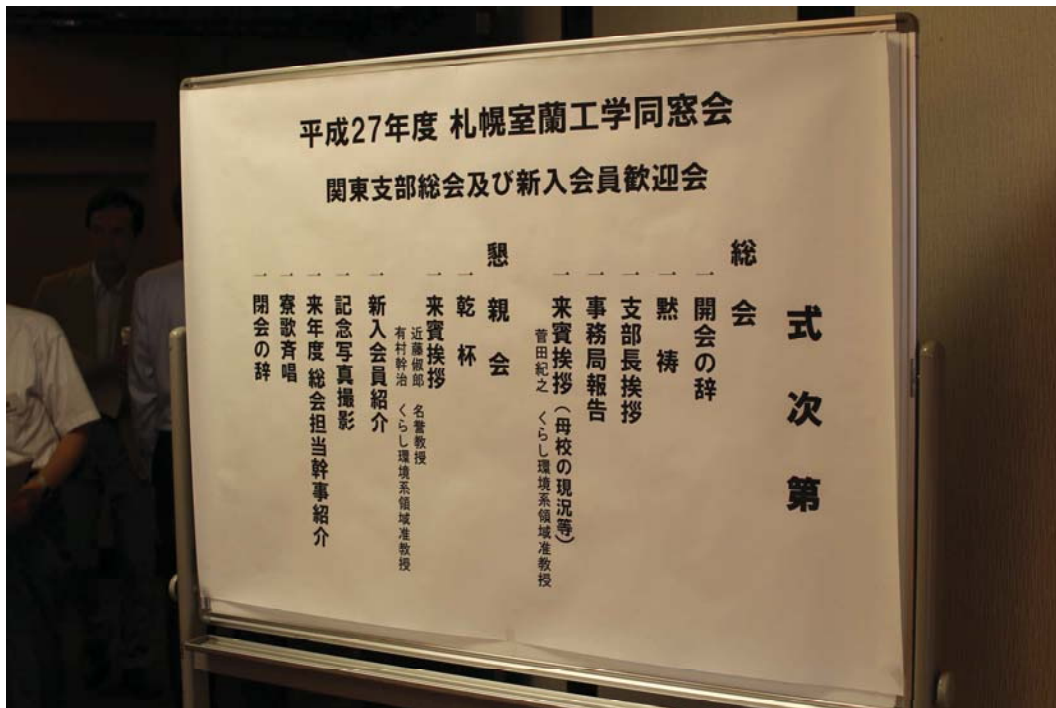 平成27年度 札幌室蘭工学同窓会
関東支部総会及び新入会員歓迎会
式次第
総会
一 開会の辞
一 黙祷
一 支部長挨拶
一 事務局報告
一 来賓挨拶(母校の現況等)
菅田紀之 くらし環境系領域准教授
懇親会
一 乾杯
一 来賓挨拶
近藤俶郎 名誉教授
有村幹治 くらし環境系領域准教授
一 新入会員紹介
一 記念写真撮影
一 来年度 総会担当幹事紹介
一 寮歌斉唱
一 閉会の辞